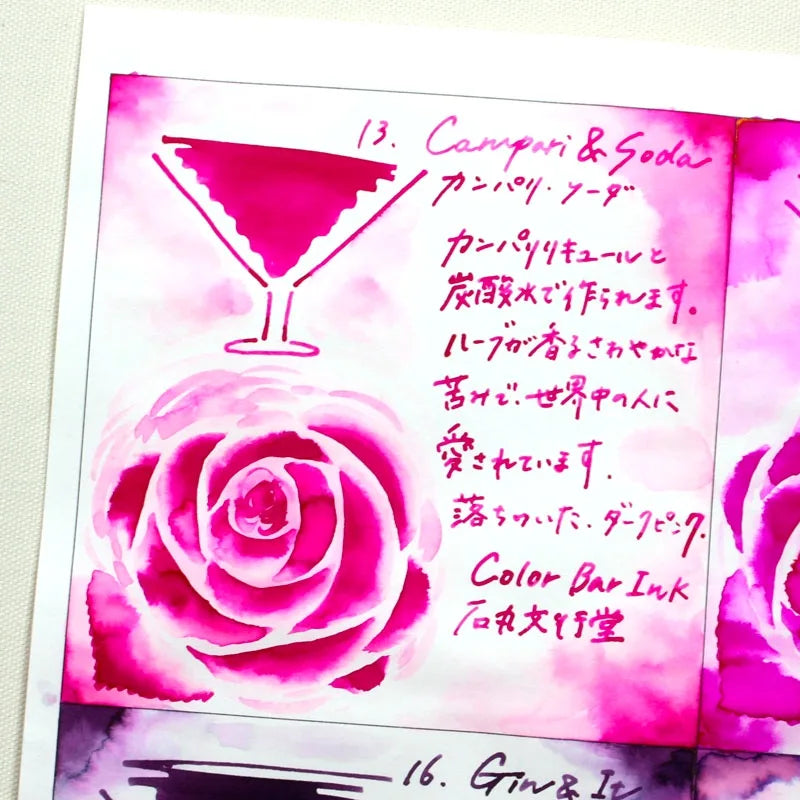 13. Campari & Soda
カンパリ・ソーダ
カンパリリキュールと
炭酸水で作られます。
ハーブが香るさわやかな
苦みで、世界中の人に
愛されています。
落ちついた、ダークピンク.
Color Bar Ink
石丸文行堂
16. Gin & It